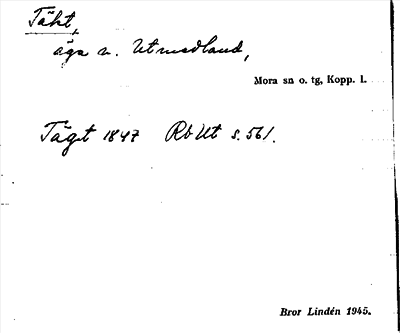 Täkt,
äga n. Utmedland,
Mora sn o. tg, Kopp. l.
Tägt 1847 Rb Ut s. 561.
Bror Lindén 1945.